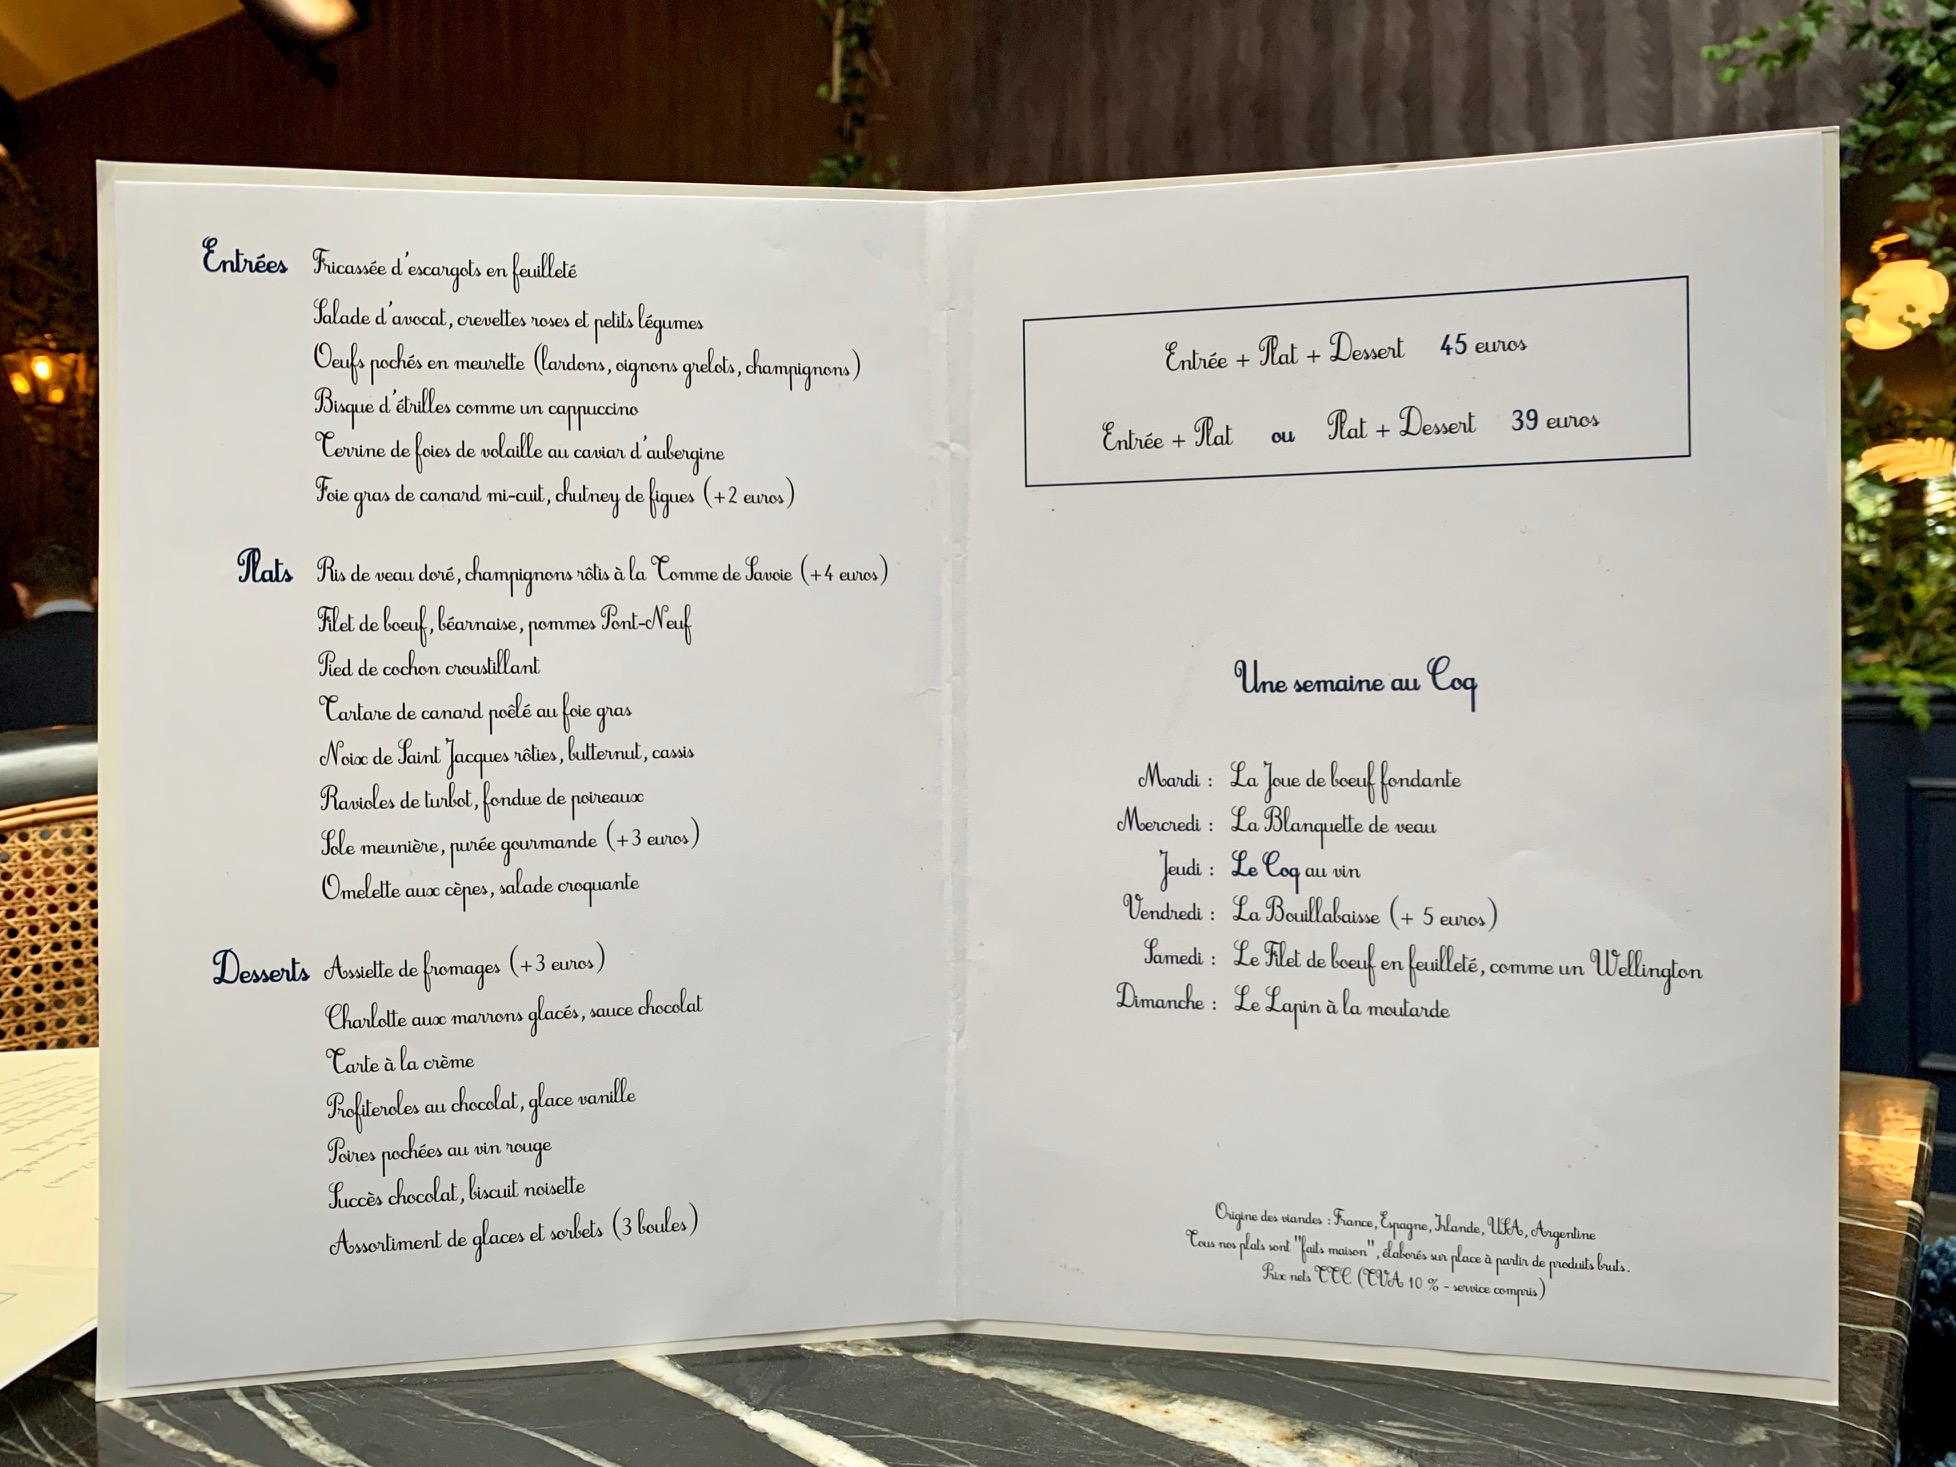 Entrées Fricassée d'escargots en feuilleté
Salade d'avocat, crevettes roses et petits légumes
Oeufs pochés en meurette (lardons, oignons grelots, champignons)
Bisque d'étrilles comme un cappuccino
Terrine de foies de volaille au caviar d'aubergine
Foie gras de canard mi-cuit, chutney de figues (+2 euros)
Plats Ris de veau doré, champignons rôtis à la Tomme de Savoie (+4 euros)
Filet de boeuf, béarnaise, pommes Pont-Neuf
Pied de cochon croustillant
Tartare de canard poêlé au foie gras
Noix de Saint Jacques rôties, butternut, cassis
Ravioles de turbot, fondue de poireaux
Sole meunière, purée gourmande (+3 euros)
Omelette aux cèpes, salade croquante
Desserts Assiette de fromages (+3 euros)
Charlotte aux marrons glacés, sauce chocolat
Tarte à la crème
Profiteroles au chocolat, glace vanille
Poires pochées au vin rouge
Succès chocolat, biscuit noisette
Assortiment de glaces et sorbets (3 boules)
Entrée + Plat + Dessert 45 euros
Entrée + Plat ou Plat + Dessert 39 euros
Une semaine au Coq
Mardi : La Joue de boeuf fondante
Mercredi : La Blanquette de veau
Jeudi : Le Coq au vin
Vendredi : La Bouillabaisse (+ 5 euros)
Samedi : Le Filet de boeuf en feuilleté, comme un Wellington
Dimanche : Le Lapin à la moutarde
Origine des viandes : France, Espagne, Irlande, USA, Argentine
Tous nos plats sont "faits maison", élaborés sur place à partir de produits bruts.
Prix nets TTC (TVA 10 % - service compris)